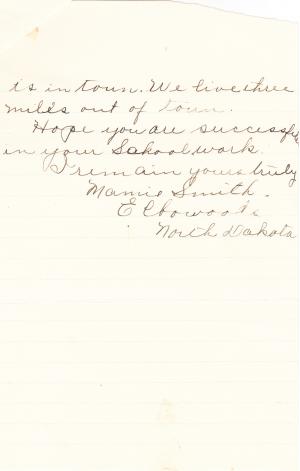 is in town. We live three
miles out of town.
Hope you are successful
in your School work.
I remain yours truly
Mamie Smith.
Elbowoods
North Dakota